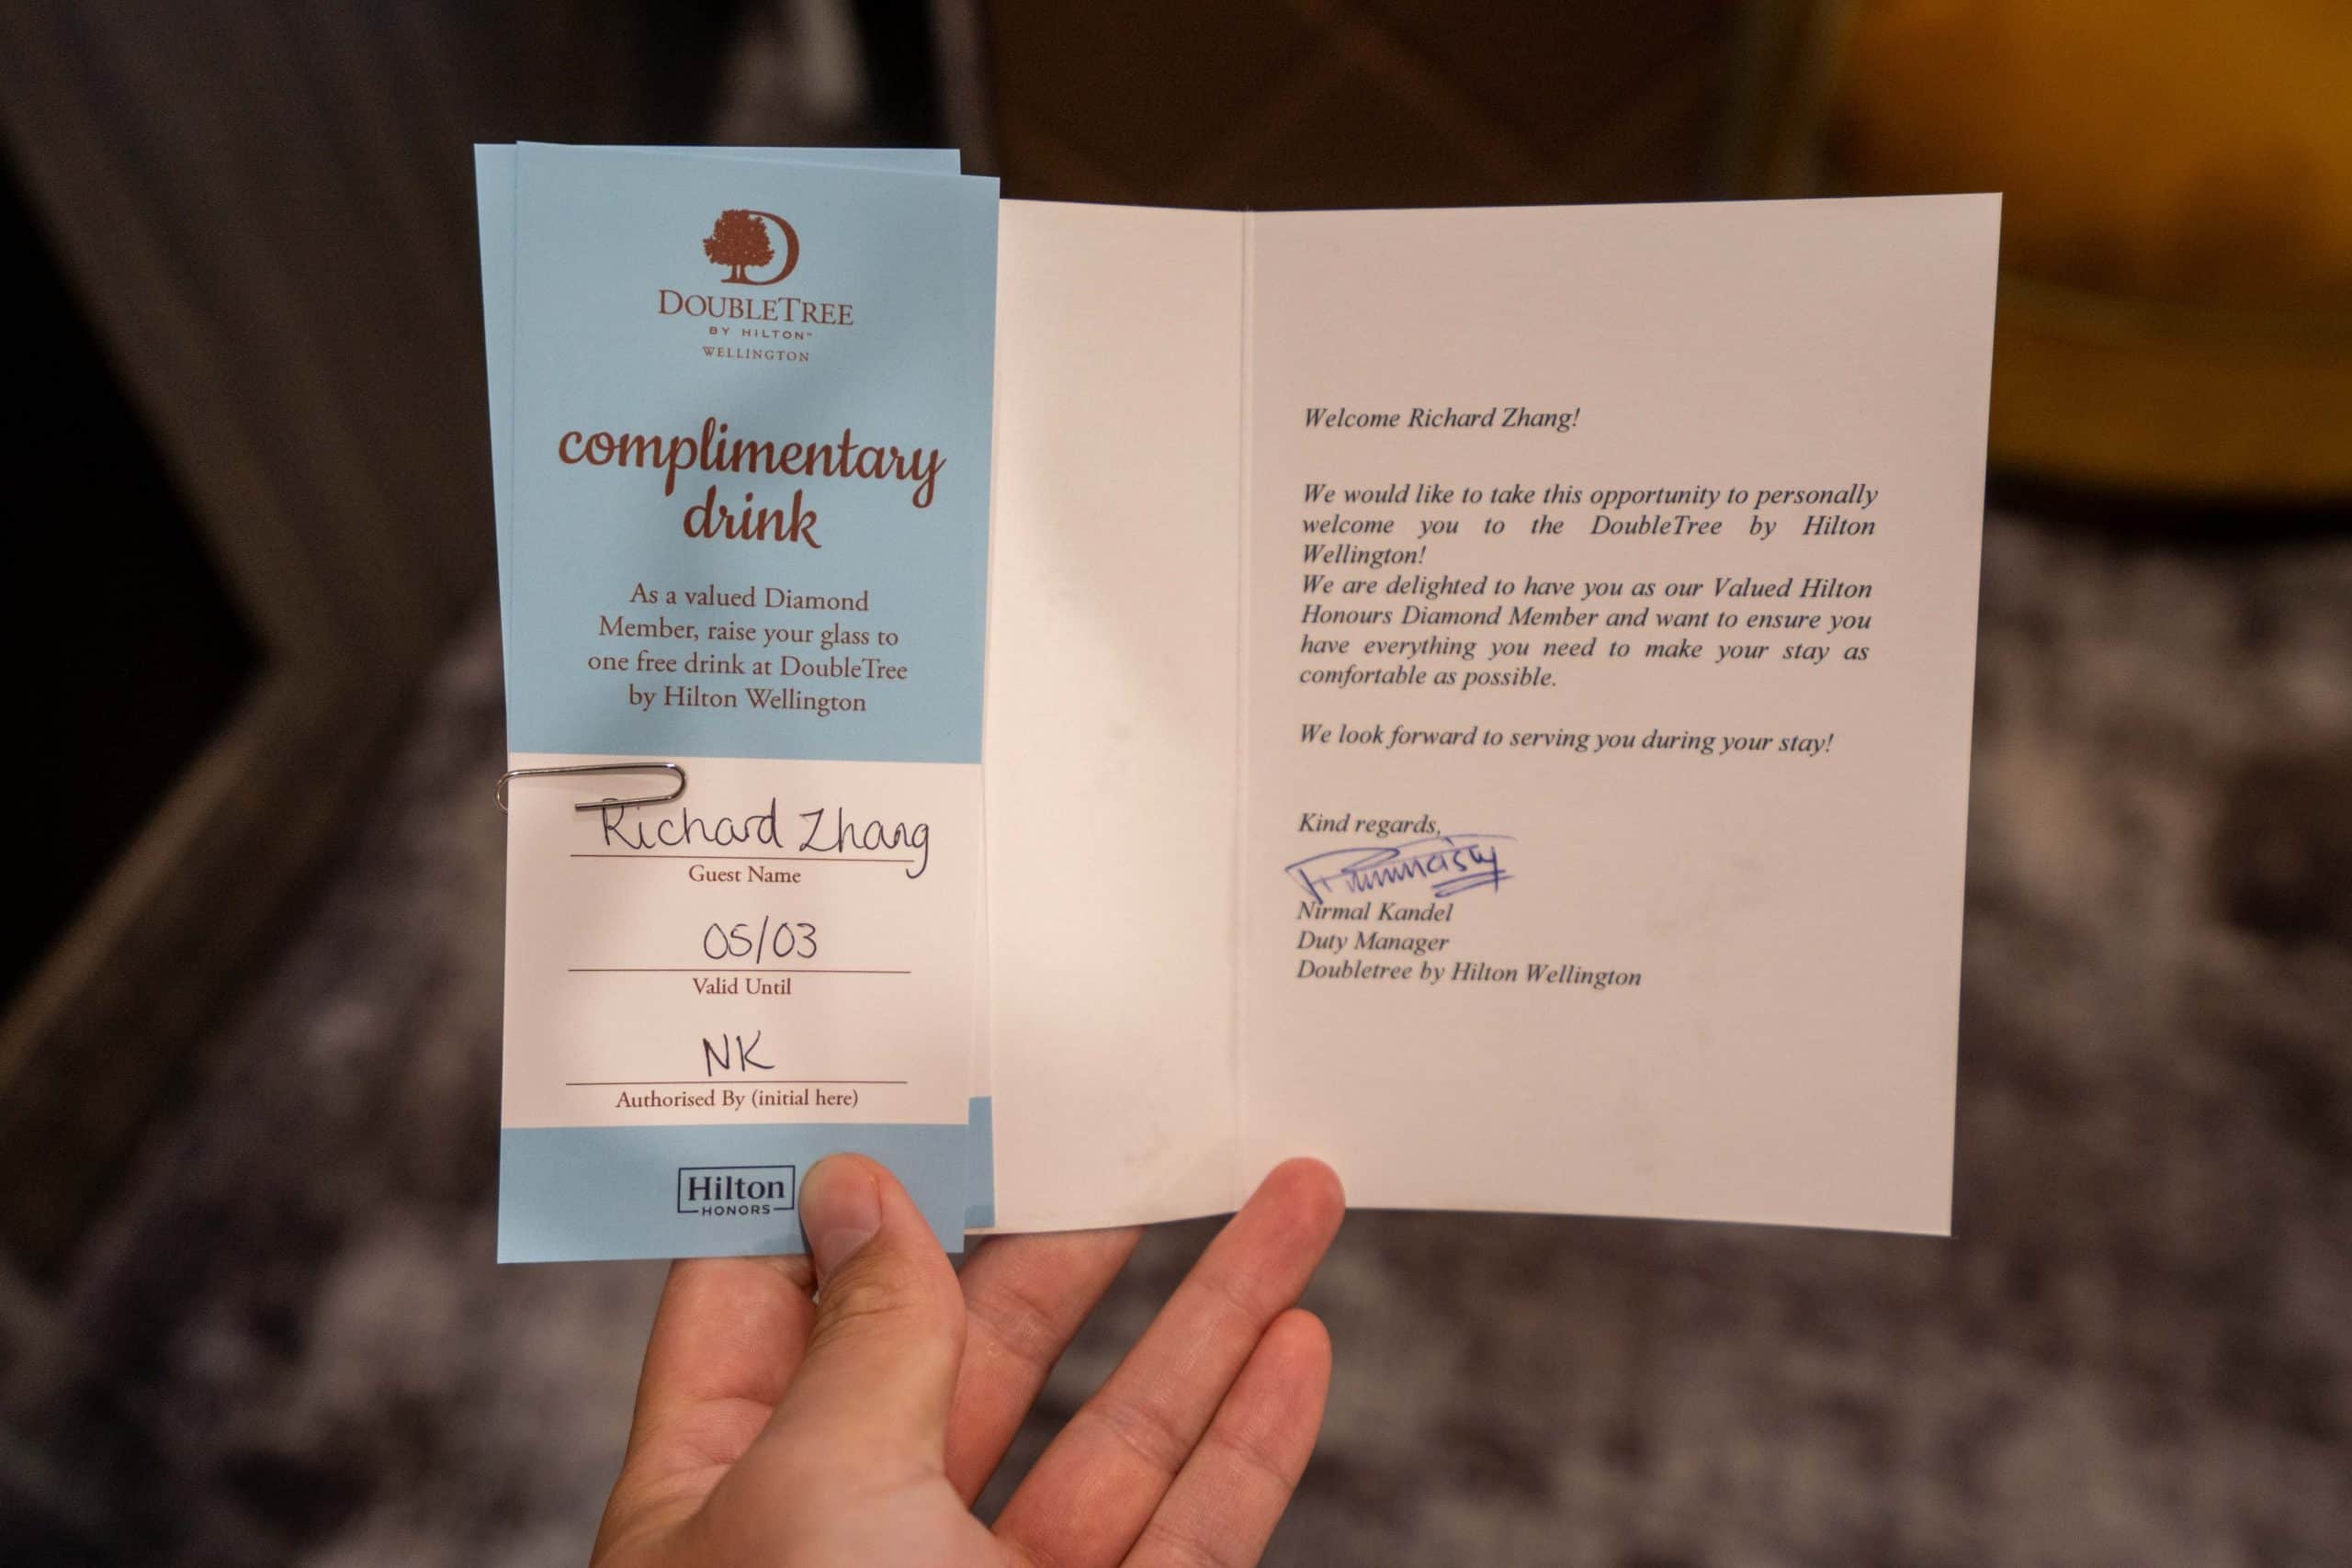 DOUBLETREE
BY HILTON™
WELLINGTON
complimentary
drink
As a valued Diamond
Member, raise your glass to
one free drink at DoubleTree
by Hilton Wellington
Richard Zhang
Guest Name
05/03
Valid Until
NK
Authorised By (initial here)
Hilton
HONORS
Welcome Richard Zhang!
We would like to take this opportunity to personally
welcome you to the DoubleTree by Hilton
Wellington!
We are delighted to have you as our Valued Hilton
Honours Diamond Member and want to ensure you
have everything you need to make your stay as
comfortable as possible.
We look forward to serving you during your stay!
Kind regards,
Nirmal Kandel
Duty Manager
Doubletree by Hilton Wellington